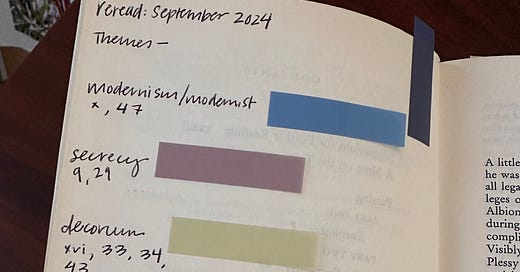 reread: September 2024
Themes—
modernism/modernist
x, 47
secrecy
9, 29
decorum
xvi, 33, 34,
43
A little
he was
all lega
leges o
Albion
during
compli
Visibly
Plessy